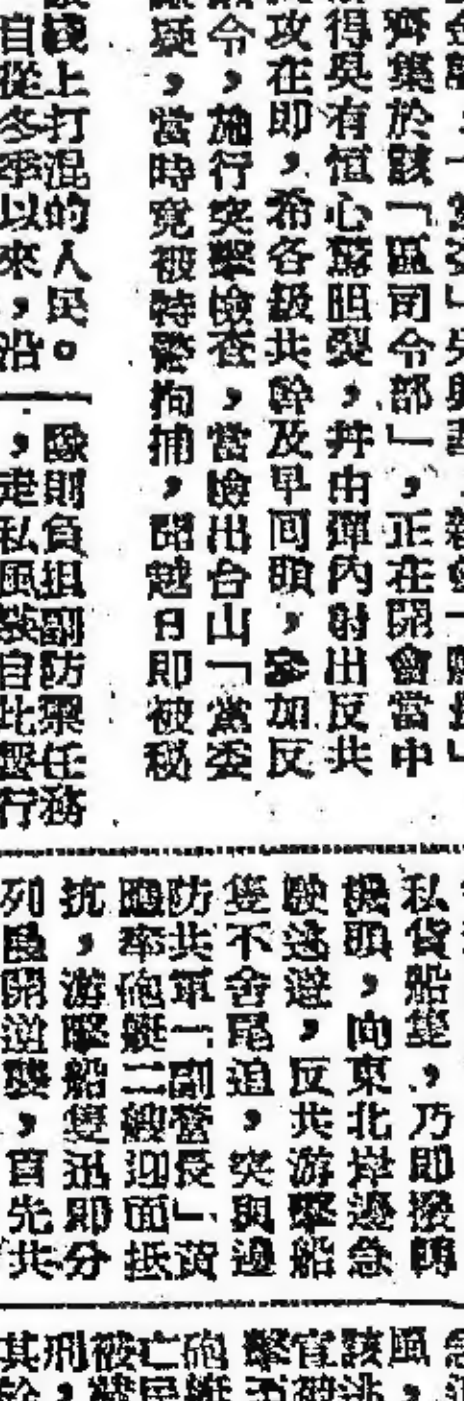 齊集於該「區司令部」，正在開會當中
得吳有恒心驚胆裂，并由彈內射出反共
攻在即，希各級共幹及早回頭，參加反
令，施行突擊檢查，當檢出台山「黨委
疑，當時竟被特警拘捕，詎越日即被秘
上打混的人民。
自從冬季以來，沿
隊則負担副防禦任務
，走私風發自此暫行
私貨船隻，乃即撥轉
機頭，向東北岸邊急
駛逃避，反共游擊船
隻不舍尾追，突與邊
防共軍一副營長」黃
應率砲艇二艘迎面抵
抗，游擊船隻迅即分
列隊開逆襲，首先共